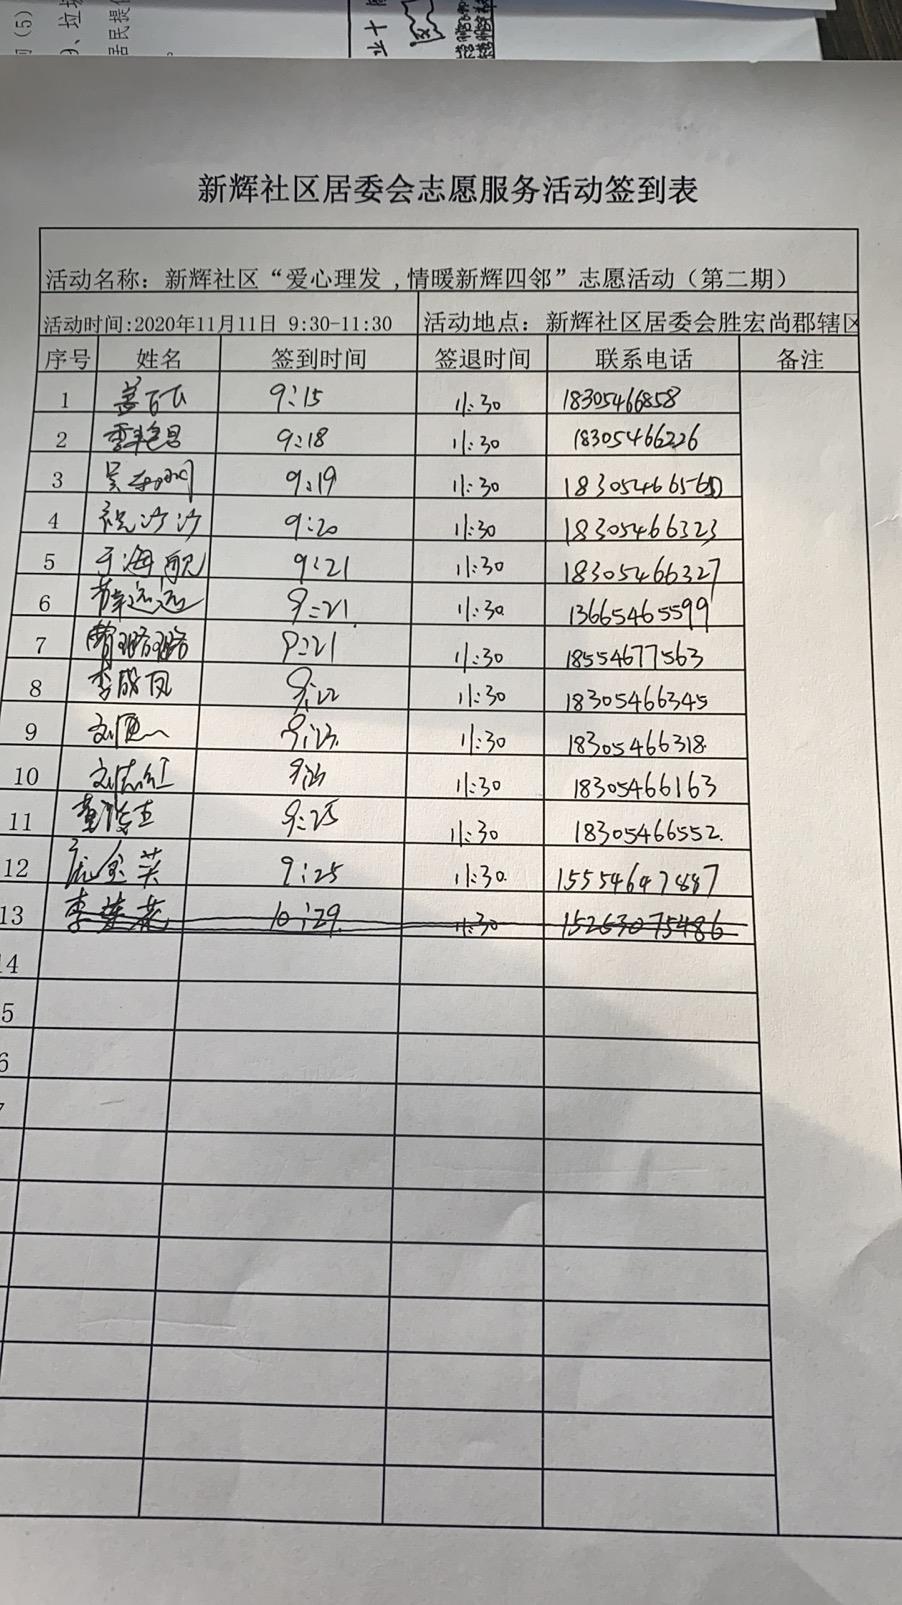 新辉社区居委会志愿服务活动签到表
活动名称：新辉社区“爱心理发,情暖新辉四邻”志愿活动（第二期）
活动时间:2020年11月11日 9:30-11:30 活动地点：新辉社区居委会胜宏尚郡辖区
序号 姓名 签到时间 签退时间 联系电话 备注
1 9:15 11:30 18305466858
2 9:18 11:30 18305466226
3 9:19 11:30
4 祝沙沙 9:20 11:30 18305466323
5 于海 9:21 11:30 18305466327
6 薛远远 9:21 11:30 13665465599
7 曹璐璐 9:21 11:30 18554677563
8 李成凤 9:22 11:30 18305466345
9 9:23 11:30 18305466318
10 刘志红 11:30 18305466163
11 9:25 11:30 18305466552
12 庞金英 9:25 11:30
13 10:29 11:30 15263075486
14
5
6